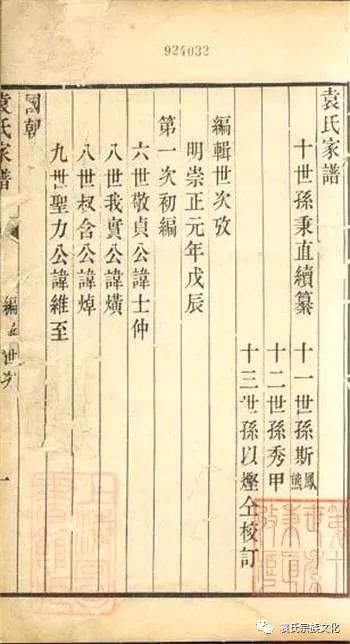 924032
袁氏家譜
十世孫秉直續纂
十一世孫斯鳳熊
十二世孫秀甲
十三世孫以㷳仝校訂
編輯世次攷
明崇正元年戊辰
第一次初編
六世敬貞公諱士仲
八世我實公諱熿
八世叔含公諱焯
九世聖力公諱維至
國朝
袁氏家譜
編
世次
一
袁氏宗族文化